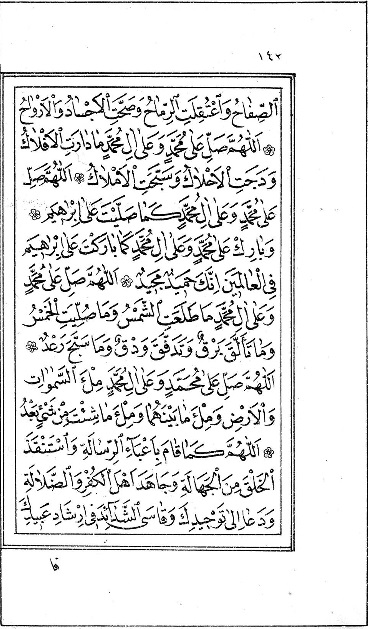 ١٤٢
الصِّفَاحُ وَاعْتُقِلَتِ الرِّمَاحُ وَصَحَّتِ الْأَجْسَادُ وَالْأَرْوَاحُ
اَللّٰهُمَّ صَلِّ عَلٰى مُحَمَّدٍ وَعَلٰى اٰلِ مُحَمَّدٍ مَا دَارَتِ الْأَفْلَاكُ
وَدَجَتِ الْأَحْلَاكُ وَسَبَّحَتِ الْأَمْلَاكُ اَللّٰهُمَّ صَلِّ
عَلٰى مُحَمَّدٍ وَعَلٰى اٰلِ مُحَمَّدٍ كَمَا صَلَّيْتَ عَلٰى اِبْرٰهِيمَ
وَبَارِكْ عَلٰى مُحَمَّدٍ وَعَلٰى اٰلِ مُحَمَّدٍ كَمَا بَارَكْتَ عَلٰى اِبْرٰهِيمَ
فِي الْعَالَمِينَ اِنَّكَ حَمِيدٌ مَجِيدٌ اَللّٰهُمَّ صَلِّ عَلٰى مُحَمَّدٍ
وَعَلٰى اٰلِ مُحَمَّدٍ مَا طَلَعَتِ الشَّمْسُ وَمَا صُلِّيَتِ الْخَمْسُ
وَمَا تَأَلَّقَ بَرْقٌ وَتَدَفَّقَ وَدْقٌ وَمَا سَبَّحَ رَعْدٌ
اَللّٰهُمَّ صَلِّ عَلٰى مُحَمَّدٍ وَعَلٰى اٰلِ مُحَمَّدٍ مِلْءَ السَّمٰوَاتِ
وَالْأَرْضِ وَمِلْءَ مَا بَيْنَهُمَا وَمِلْءَ مَا شِئْتَ مِنْ شَيْءٍ بَعْدُ
اَللّٰهُمَّ كَمَا قَامَ بِأَعْبَاءِ الرِّسَالَةِ وَاسْتَنْقَذَ
الْخَلْقَ مِنَ الْجَهَالَةِ وَجَاهَدَ اَهْلَ الْكُفْرِ وَالضَّلَالَةِ
وَدَعَا اِلٰى تَوْحِيدِكَ وَقَاسَى الشَّدَائِدَ فِي اِرْشَادِ عَبِيدِكَ
فا